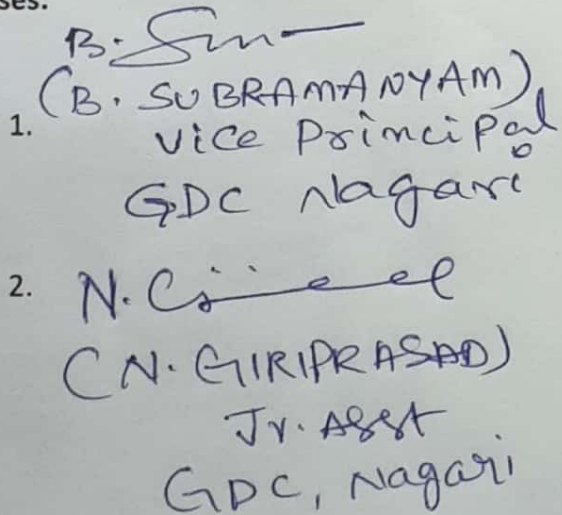 ses.
B.
1. (B. SUBRAMANYAM)
Vice Principal
GDC Nagari
2. N.
(N. GIRIPRASAD)
Jr. Asst
GDC, Nagari